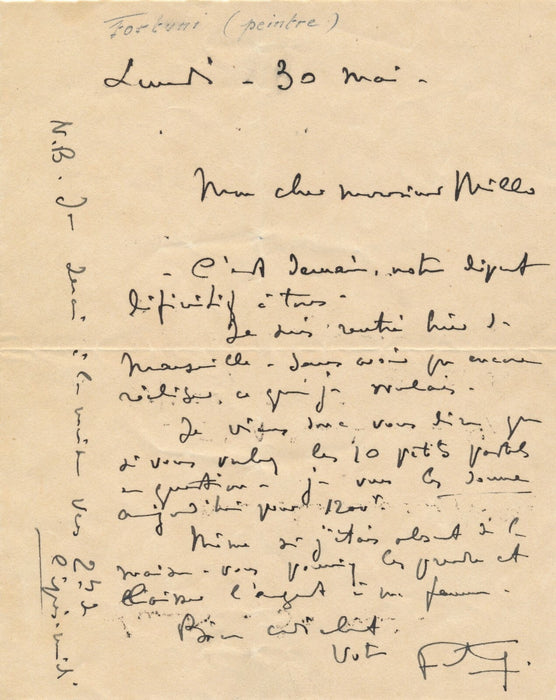 Fortuni (peintre)
Lundi - 30 Mai -
Mon cher monsieur Mille
- C'est demain, notre départ
définitif à tous -
Je suis rentré hier de
Marseille - sans avoir pu encore
réaliser, ce que je voulais.
Je viens donc vous dire que
si vous voulez les 10 petits pastels
en question - je vous les donne
aujourd'hui pour 1200f
Même si j'étais absent de la
maison - vous pourriez les prendre et
laisser l'argent à ma femme.
Bien cordialement.
Votre
N.B. Je serai à la maison vers 2h